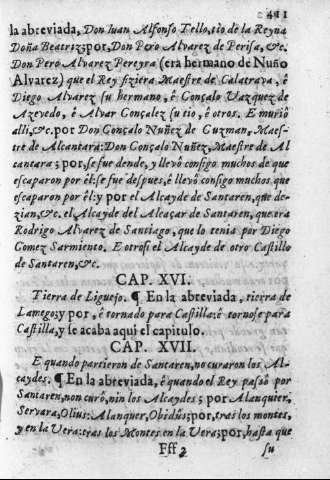 411
la abreviada, Don Iuan Alfonso Tello, tio de la Reyna
Doña Beatriz; por, Don Pero Alvarez de Perisa, &c.
Don Pero Alvarez Pereyra (era hermano de Nuño
Alvarez) que el Rey fiziera Maestre de Calatrava, é
Diego Alvarez su hermano, é Gonçalo Vazquez de
Azevedo, é Alvar Gonçalez su tio, é otros. E murió
alli, &c. por Don Gonçalo Nuñez de Guzman, Maes-
tre de Alcantara: Don Gonçalo Nuñez, Maestre de Al
cantara; por, se fue dende, y llevó consigo muchos de que
escaparon por él: se fue despues, é llevó consigo muchos que
escaparon por él: y por el Alcayde de Santaren, que de-
zian, &c. el Alcayde del Alcaçar de Santaren, que era
Rodrigo Alvarez de Santiago, que lo tenia por Diego
Gomez Sarmiento. E otrosi el Alcayde de otro Castillo
de Santaren, &c.
CAP. XVI.
Tierra de Liguejo. ¶ En la abreviada, tierra de
Lamego; y por, é tornado para Castilla: é tornose para
Castilla, y se acaba aqui el capitulo.
CAP. XVII.
E quando partieron de Santaren, no curaron los Al-
caydes. ¶ En la abreviada, é quando el Rey passó por
Santaren, non curó, nin los Alcaydes; por Alanquier,
Servara, Olius: Alanquer, Obidus; por, tras los montes,
y en la Vera: tras los Montes en la Vera; por, hasta que
Fff 2
su